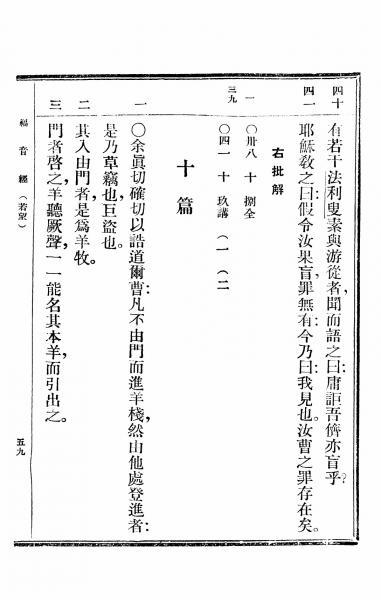 四十 有若干法利叟素與游從者，聞而語之曰：庸詎吾儕亦盲乎？
四一 耶穌敎之曰：假令汝果盲，罪無有；今乃曰：我見也。汝曹之罪存在矣。
右批解
一 〇卅八 十 捌全
三九 〇四一 十 玖講（一）（二
十篇
一 〇余眞切確切以誥道爾曹：凡不由門而進羊棧，然由他處登進者：
是乃草竊也，巨盜也。
二 其入由門者，是爲羊牧。
三 門者啓之，羊聽厥聲，一一能名其本羊，而引出之。
福音經（若望）
五九